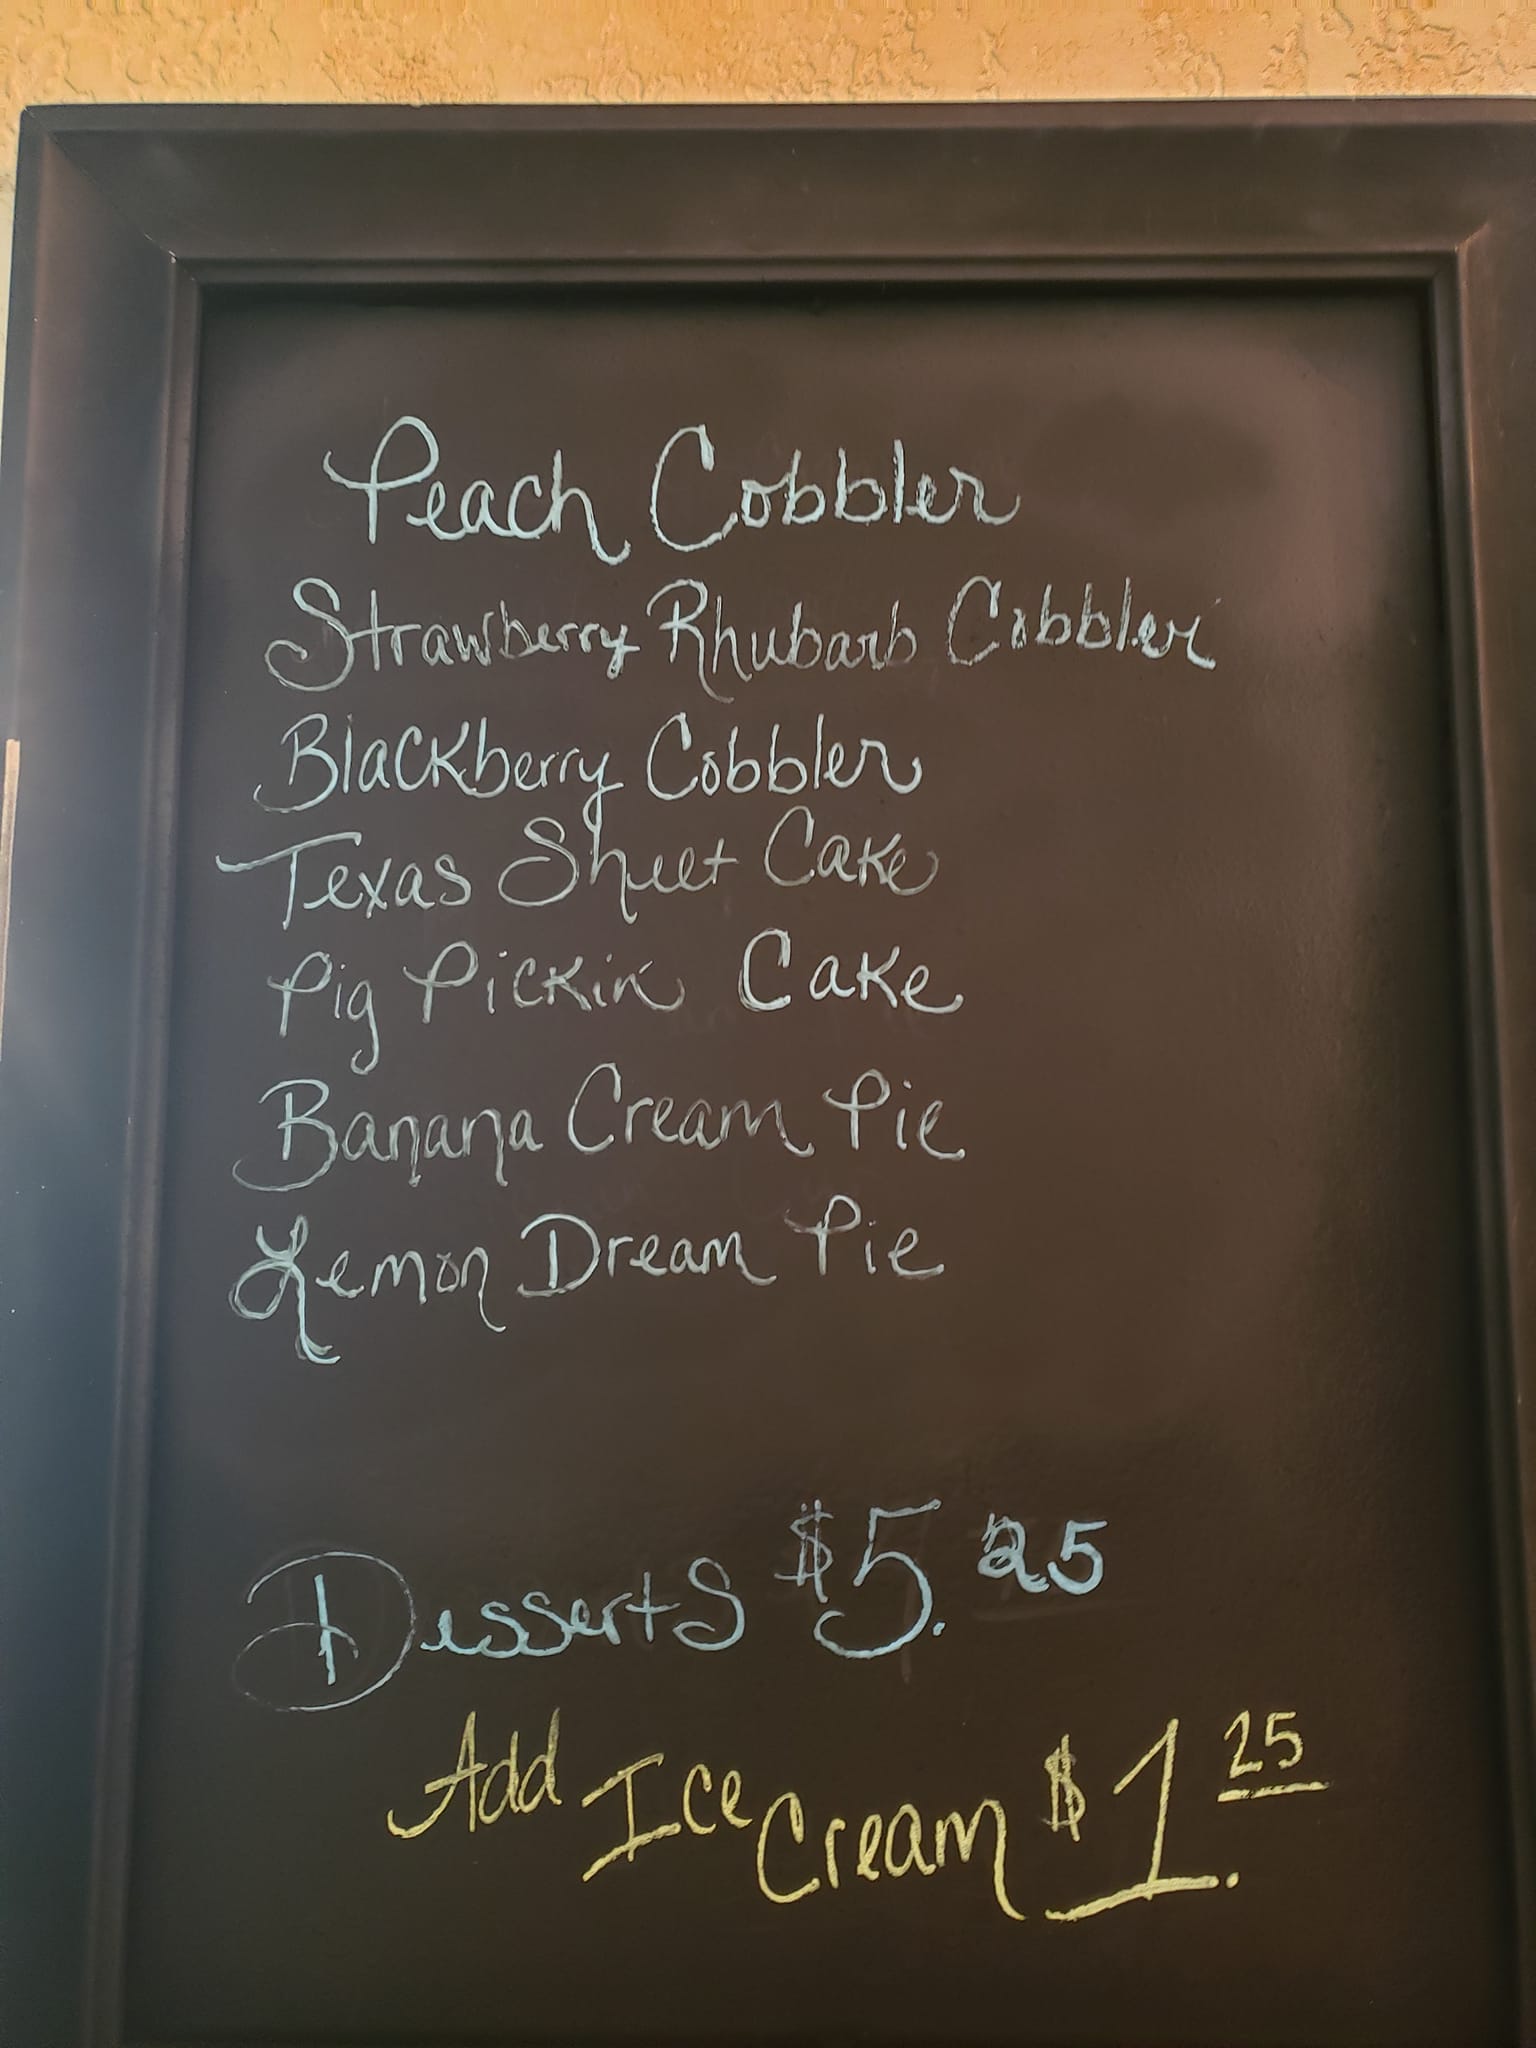 Peach Cobbler
Strawberry Rhubarb Cobbler
Blackberry Cobbler
Texas Sheet Cake
Pig Pickin Cake
Banana Cream Pie
Lemon Dream Pie
Desserts $5.25
Add Ice Cream $1.25